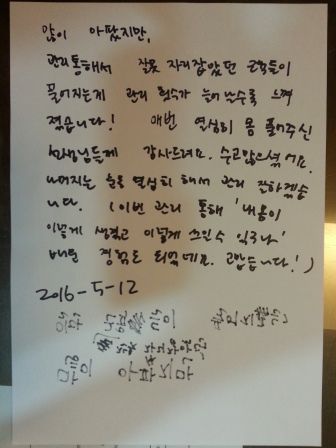 많이 아팠지만,
관리통해서 잘못 자리잡았던 근육들이
풀어지는게 관리 횟수가 늘어날수록 느껴
졌습니다! 매번 열심히 몸 풀어주신
선생님들께 감사드려요. 수고많으셨어요.
나머지는 운동 열심히 해서 관리 잘하겠습
니다. (이번 관리 통해 '내몸이
이렇게 생겼고 이렇게 쓰일수 있구나'
배운 경험도 되었네요. 고맙습니다!)
2016-5-12